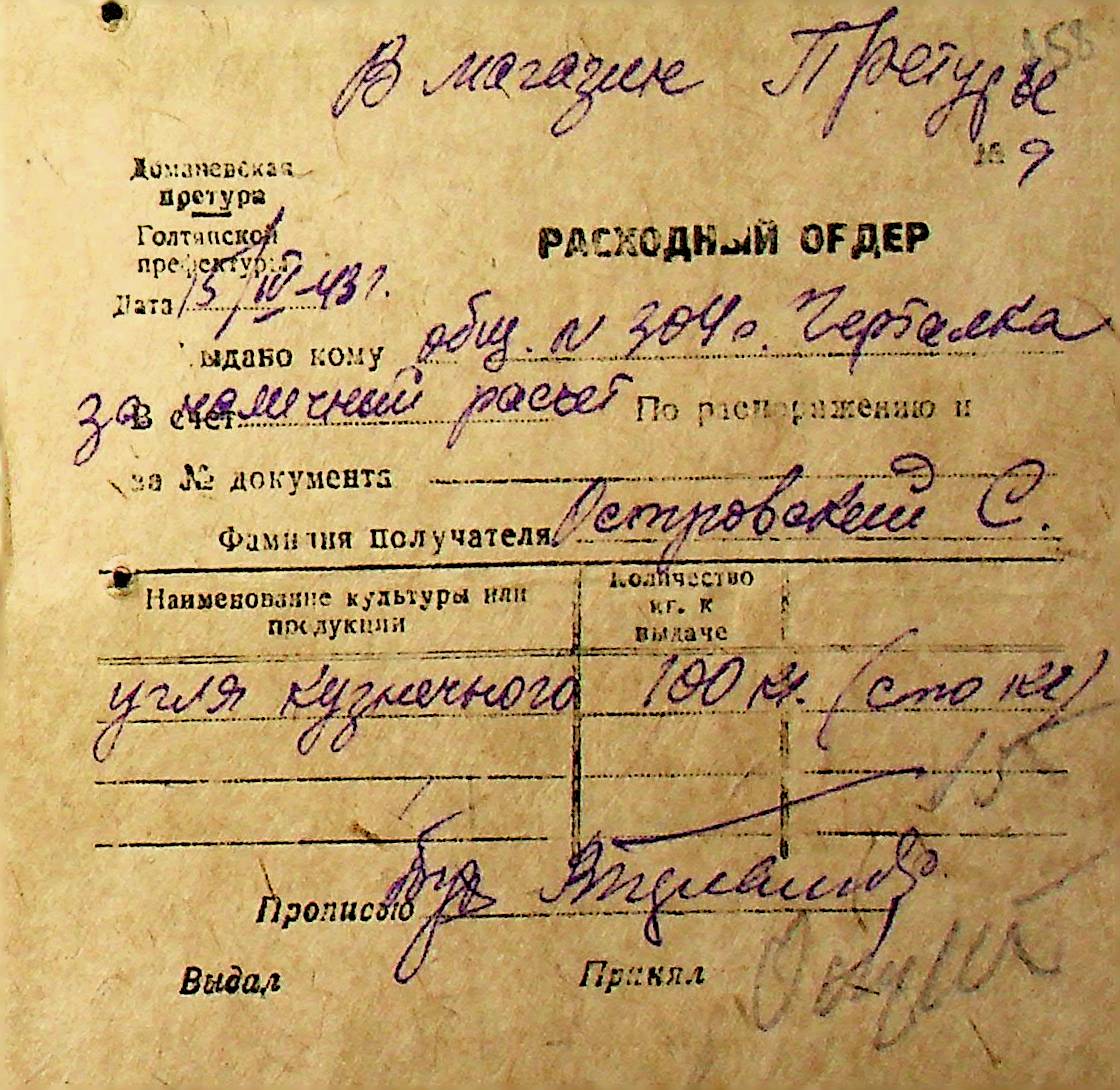 158
В магазин Претуры
№ 9
Доманевская
претура
Голтянской
префектуры
РАСХОДНЫЙ ОРДЕР
Дата 15/IV-43 г.
Выдано кому общ. N 304 с. Черталка
за наличный расчет
В счет По распоряжению и
за № документа
Фамилия получателя Островский С.
Наименование культуры или
продукции
Количество
кг. к
выдаче
угля кузнечного 100 кг. (сто кг)
15
Прописью
Выдал Принял